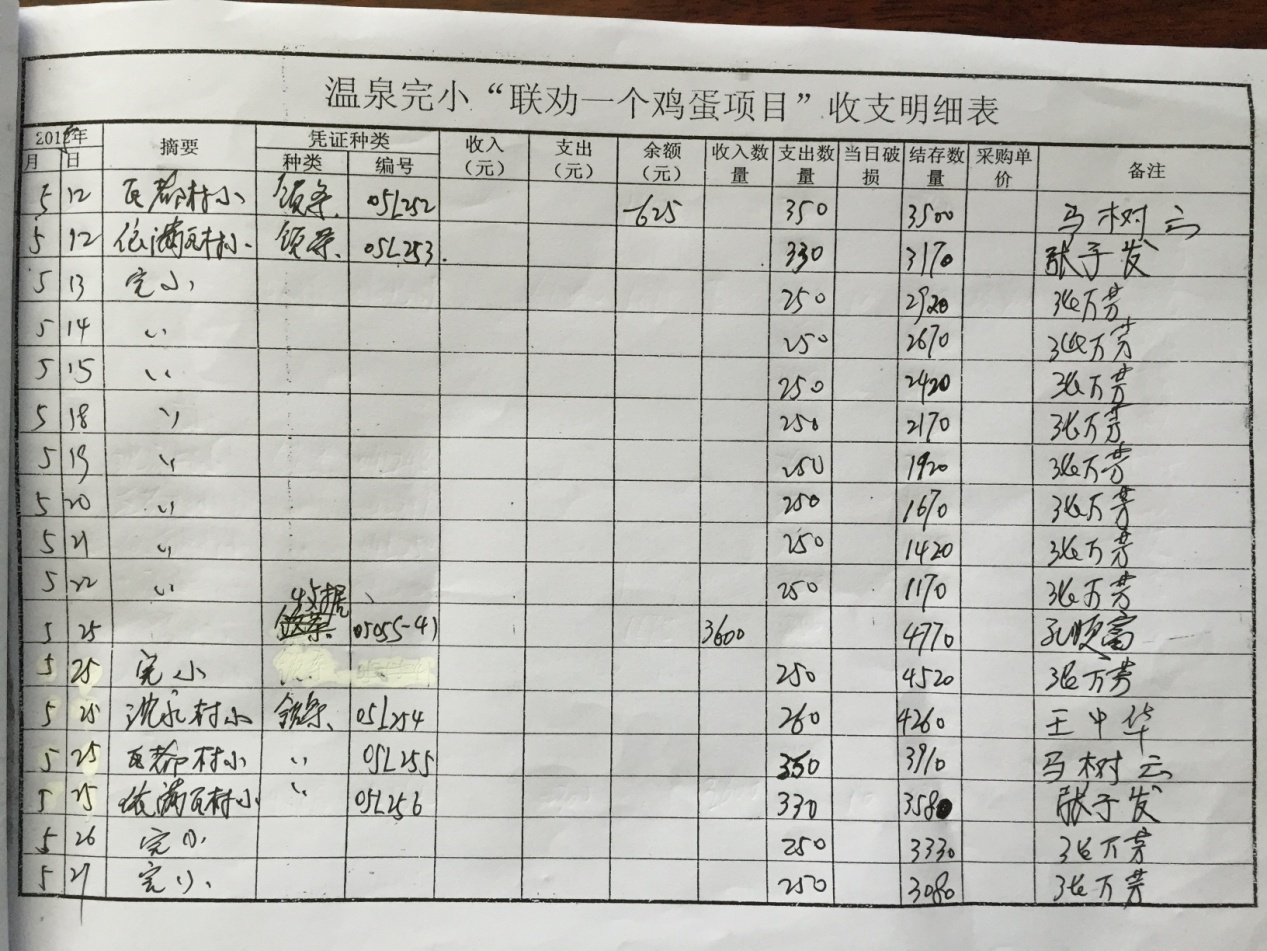 温泉完小“联劝一个鸡蛋项目”收支明细表
2015年 摘要 凭证种类 收入(元) 支出(元) 余额(元) 收入数量 支出数量 当日破损 结存数量 采购单价 备注
月 日 种类 编号
5 12 瓦都村小 领条、 05L252 -625 350 3500 马树云
5 12 依满瓦村小 领条、 05L253. 330 3170 张子发
5 13 完小 250 2920 张万芳
5 14 〃 250 2670 张万芳
5 15 〃 250 2420 张万芳
5 18 〃 250 2170 张万芳
5 19 〃 250 1920 张万芳
5 20 〃 250 1670 张万芳
5 21 〃 250 1420 张万芳
5 22 〃 250 1170 张万芳
5 25 收据、 05055-41 3600 4770 孔顺富
5 25 完小 250 4520 张万芳
5 25 沈永村小 领条、 05L254 260 4260 王中华
5 25 瓦都村小 〃 05L255 350 3910 马树云
5 25 依满瓦村小 〃 05L256 330 3580 张子发
5 26 完小 250 3330 张万芳
5 27 完小、 250 3080 张万芳